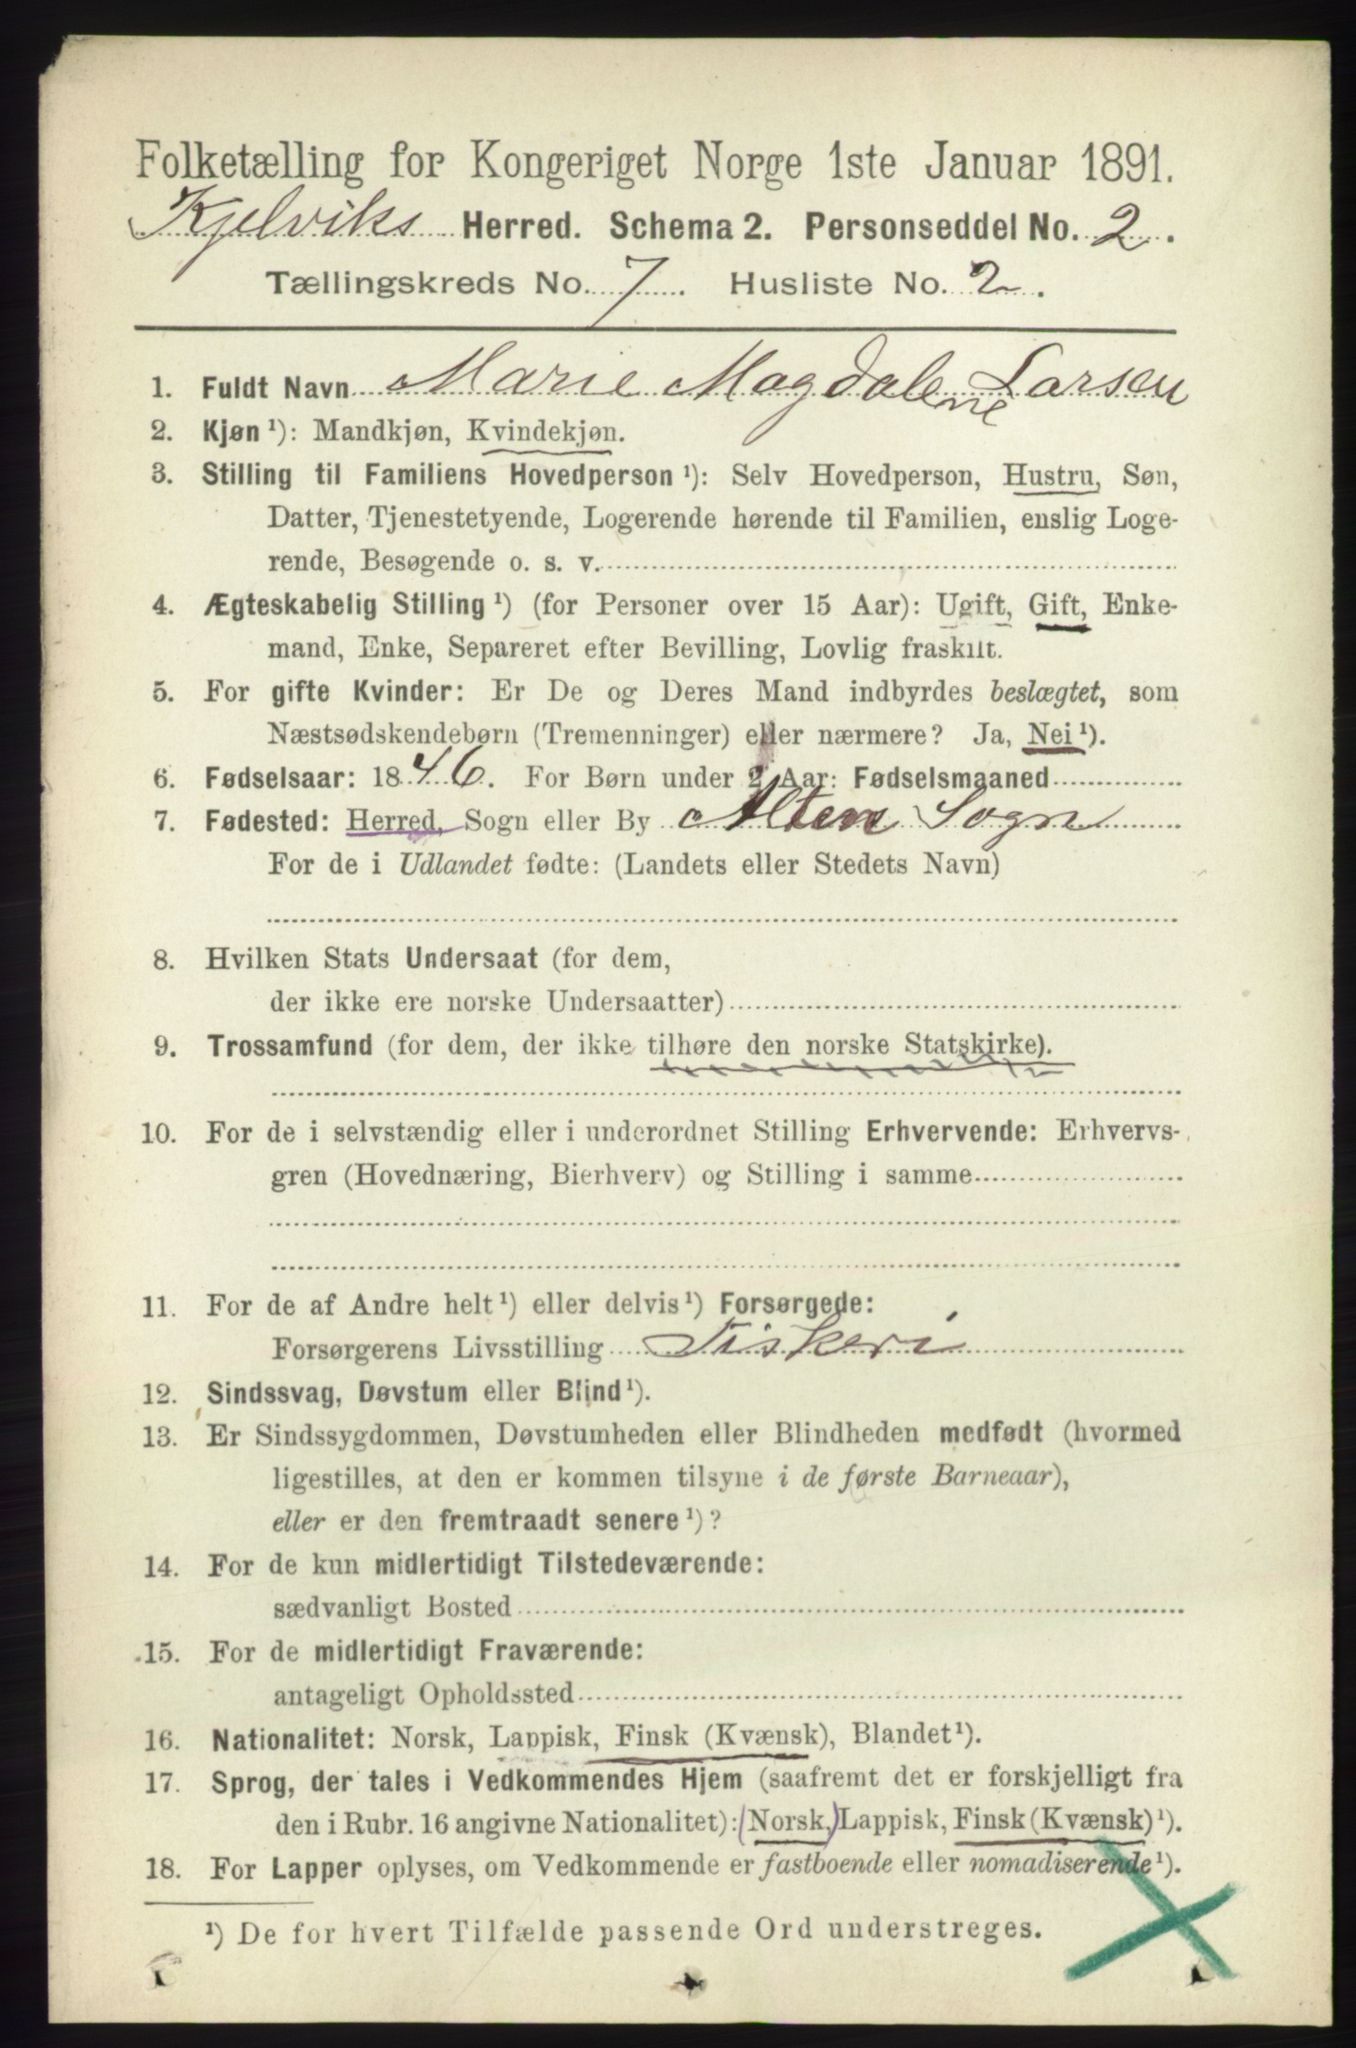 Folketælling for Kongeriget Norge 1ste Januar 1891.
Kjelviks Herred. Schema 2. Personseddel No. 2.
Tællingskreds No. 7. Husliste No. 2.
1. Fuldt Navn Marie Magdalene Larsen
2. Kjøn ¹): Mandkjøn, Kvindekjøn.
3. Stilling til Familiens Hovedperson ¹): Selv Hovedperson, Hustru, Søn,
Datter, Tjenestetyende, Logerende hørende til Familien, enslig Loge-
rende, Besøgende o. s. v.
4. Ægteskabelig Stilling ¹) (for Personer over 15 Aar): Ugift, Gift, Enke-
mand, Enke, Separeret efter Bevilling, Lovlig fraskilt.
5. For gifte Kvinder: Er De og Deres Mand indbyrdes beslægtet, som
Næstsødskendebørn (Tremenninger) eller nærmere? Ja, Nei ¹).
6. Fødselsaar: 1846. For Børn under 2 Aar: Fødselsmaaned
7. Fødested: Herred, Sogn eller By Altens Sogn
For de i Udlandet fødte: (Landets eller Stedets Navn)
8. Hvilken Stats Undersaat (for dem,
der ikke ere norske Undersaatter)
9. Trossamfund (for dem, der ikke tilhøre den norske Statskirke).
10. For de i selvstændig eller i underordnet Stilling Erhvervende: Erhvervs-
gren (Hovednæring, Bierhverv) og Stilling i samme
11. For de af Andre helt ¹) eller delvis ¹) Forsørgede:
Forsørgerens Livsstilling Fiskeri
12. Sindssvag, Døvstum eller Blind ¹).
13. Er Sindssygdommen, Døvstumheden eller Blindheden medfødt (hvormed
ligestilles, at den er kommen tilsyne i de første Barneaar),
eller er den fremtraadt senere ¹)?
14. For de kun midlertidigt Tilstedeværende:
sædvanligt Bosted
15. For de midlertidigt Fraværende:
antageligt Opholdssted
16. Nationalitet: Norsk, Lappisk, Finsk (Kvænsk), Blandet ¹).
17. Sprog, der tales i Vedkommendes Hjem (saafremt det er forskjelligt fra
den i Rubr. 16 angivne Nationalitet): (Norsk,) Lappisk, Finsk (Kvænsk) ¹).
18. For Lapper oplyses, om Vedkommende er fastboende eller nomadiserende ¹).
¹) De for hvert Tilfælde passende Ord understreges.